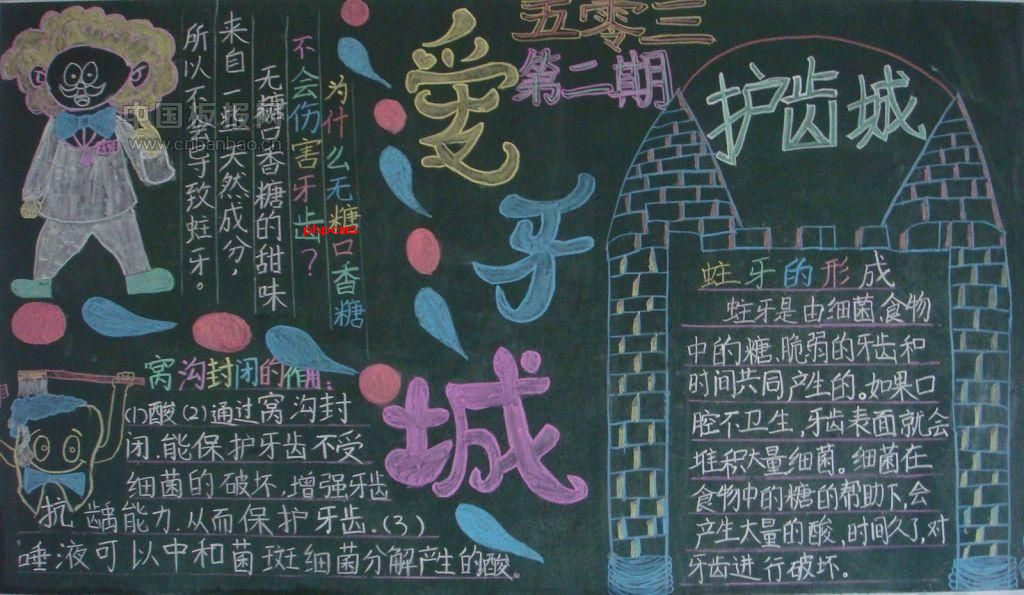 五零三
第二期
爱牙城
护齿城
为什么无糖口香糖
不会伤害牙齿？
无糖口香糖的甜味
来自一些天然成分，
所以不会导致蛀牙。
中国板报
www.cnbanbao.cn
phpcms
窝沟封闭的作用：
(1)酸(2)通过窝沟封
闭，能保护牙齿不受
细菌的破坏，增强牙齿
抗龋能力，从而保护牙齿。(3)
唾液可以中和菌斑细菌分解产生的酸。
蛀牙的形成
蛀牙是由细菌、食物
中的糖、脆弱的牙齿和
时间共同产生的。如果口
腔不卫生，牙齿表面就会
堆积大量细菌。细菌在
食物中的糖的帮助下，会
产生大量的酸，时间久了，对
牙齿进行破坏。